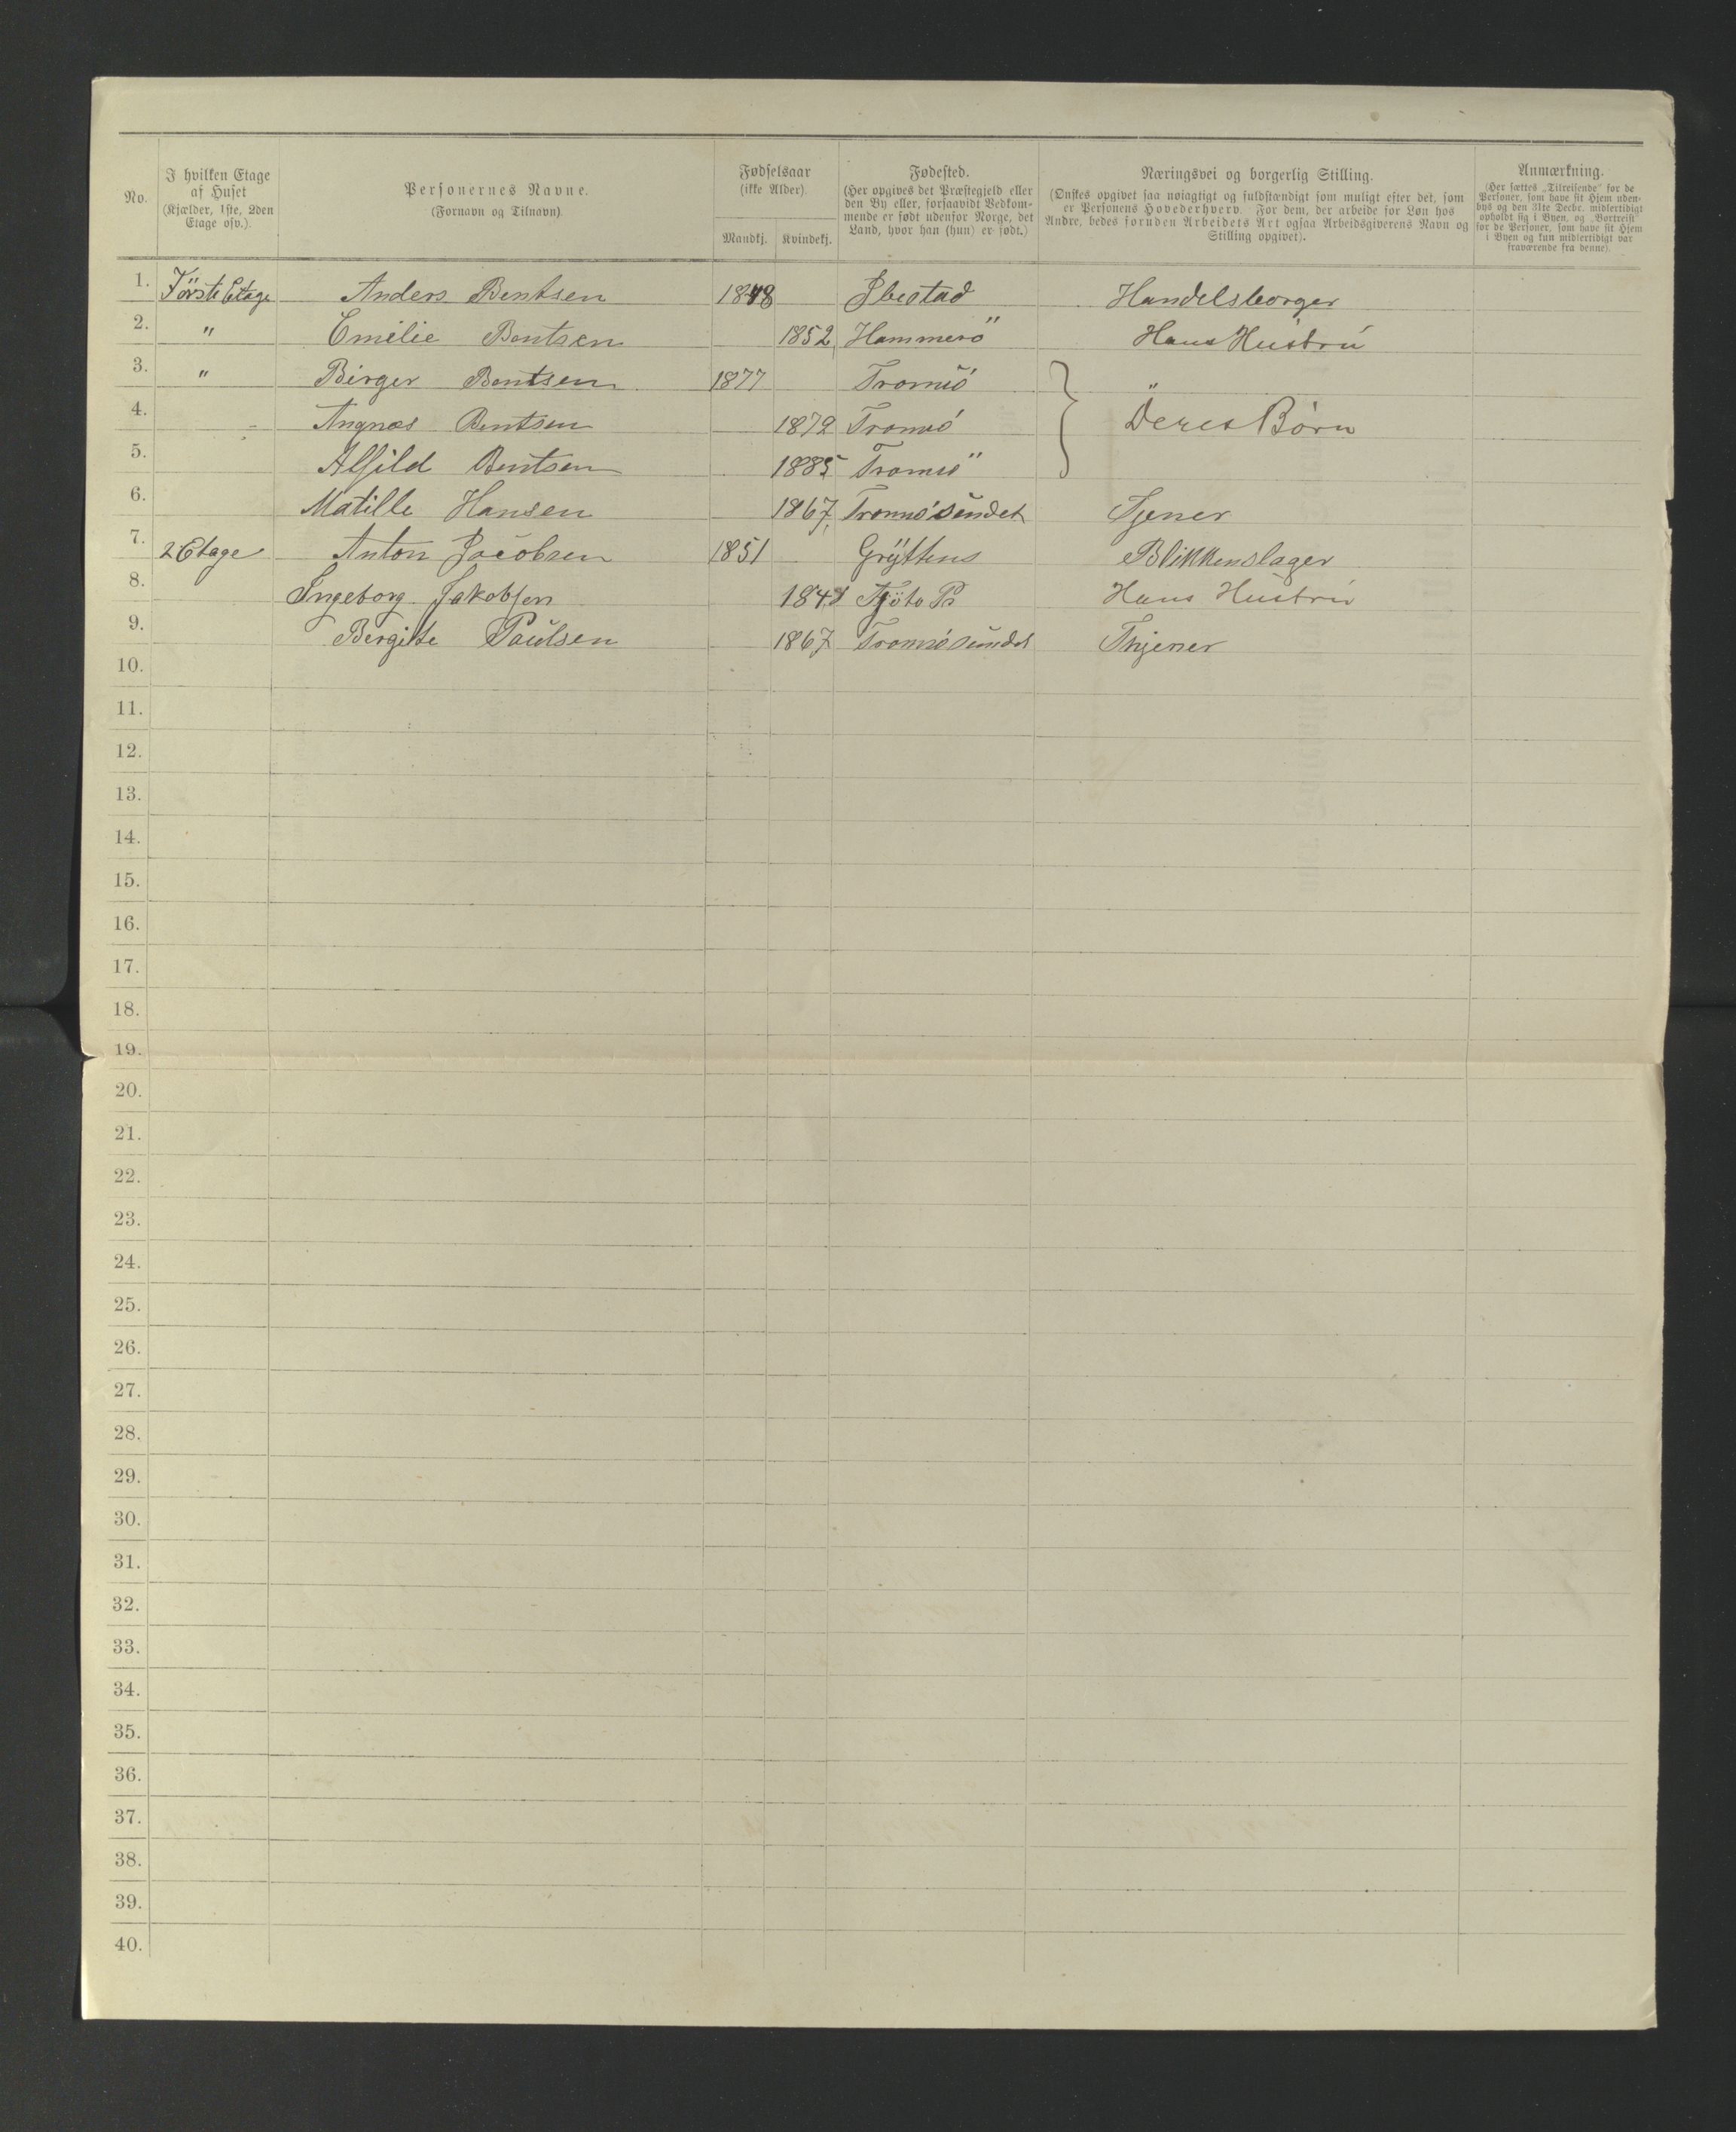 No. | I hvilken Etage af Huset (Kjælder, 1ste, 2den Etage osv.). | Personernes Navne. (Fornavn og Tilnavn). | Fødselsaar (ikke Alder). Mandkj. | Kvindekj. | Fødested. (Her opgives det Præstegjeld eller den By eller, forsaavidt Vedkommende er født udenfor Norge, det Land, hvor han (hun) er født.) | Næringsvei og borgerlig Stilling. (Ønskes opgivet saa nøiagtigt og fuldstændigt som muligt efter det, som er Personens Hovederhverv. For dem, der arbeide for Løn hos Andre, bedes foruden Arbeidets Art ogsaa Arbeidsgiverens Navn og Stilling opgivet). | Anmærkning. (Her sættes „Tilreisende" for de Personer, som have sit Hjem udenbys og den 31te Decbr. midlertidigt opholdt sig i Byen, og „Bortreist" for de Personer, som have sit Hjem i Byen og kun midlertidigt var fraværende fra denne).
1. Förste Etage Anders Bentsen 1848 Ibestad Handelsborger
2. " Emilie Bentsen 1852 Hammerö Hans Hustru
3. " Birger Bentsen 1877 Tromsö "
4. Angnæs Bentsen 1872 Tromsö Deres Børn
5. Alfild Bentsen 1885 Tromsö
6. Matille Hansen 1867 Tromsösundet Tjener
7. 2 Etage Anton Jacobsen 1851 Gryttens Blikkenslager
8. Ingeborg Jakobsen Tjöto Pr Hans Hustru
9. Bergitte Paulsen 1867 Tromsösundet Thjener
10.
11.
12.
13.
14.
15.
16.
17.
18.
19.
20.
21.
22.
23.
24.
25.
26.
27.
28.
29.
30.
31.
32.
33.
34.
35.
36.
37.
38.
39.
40.